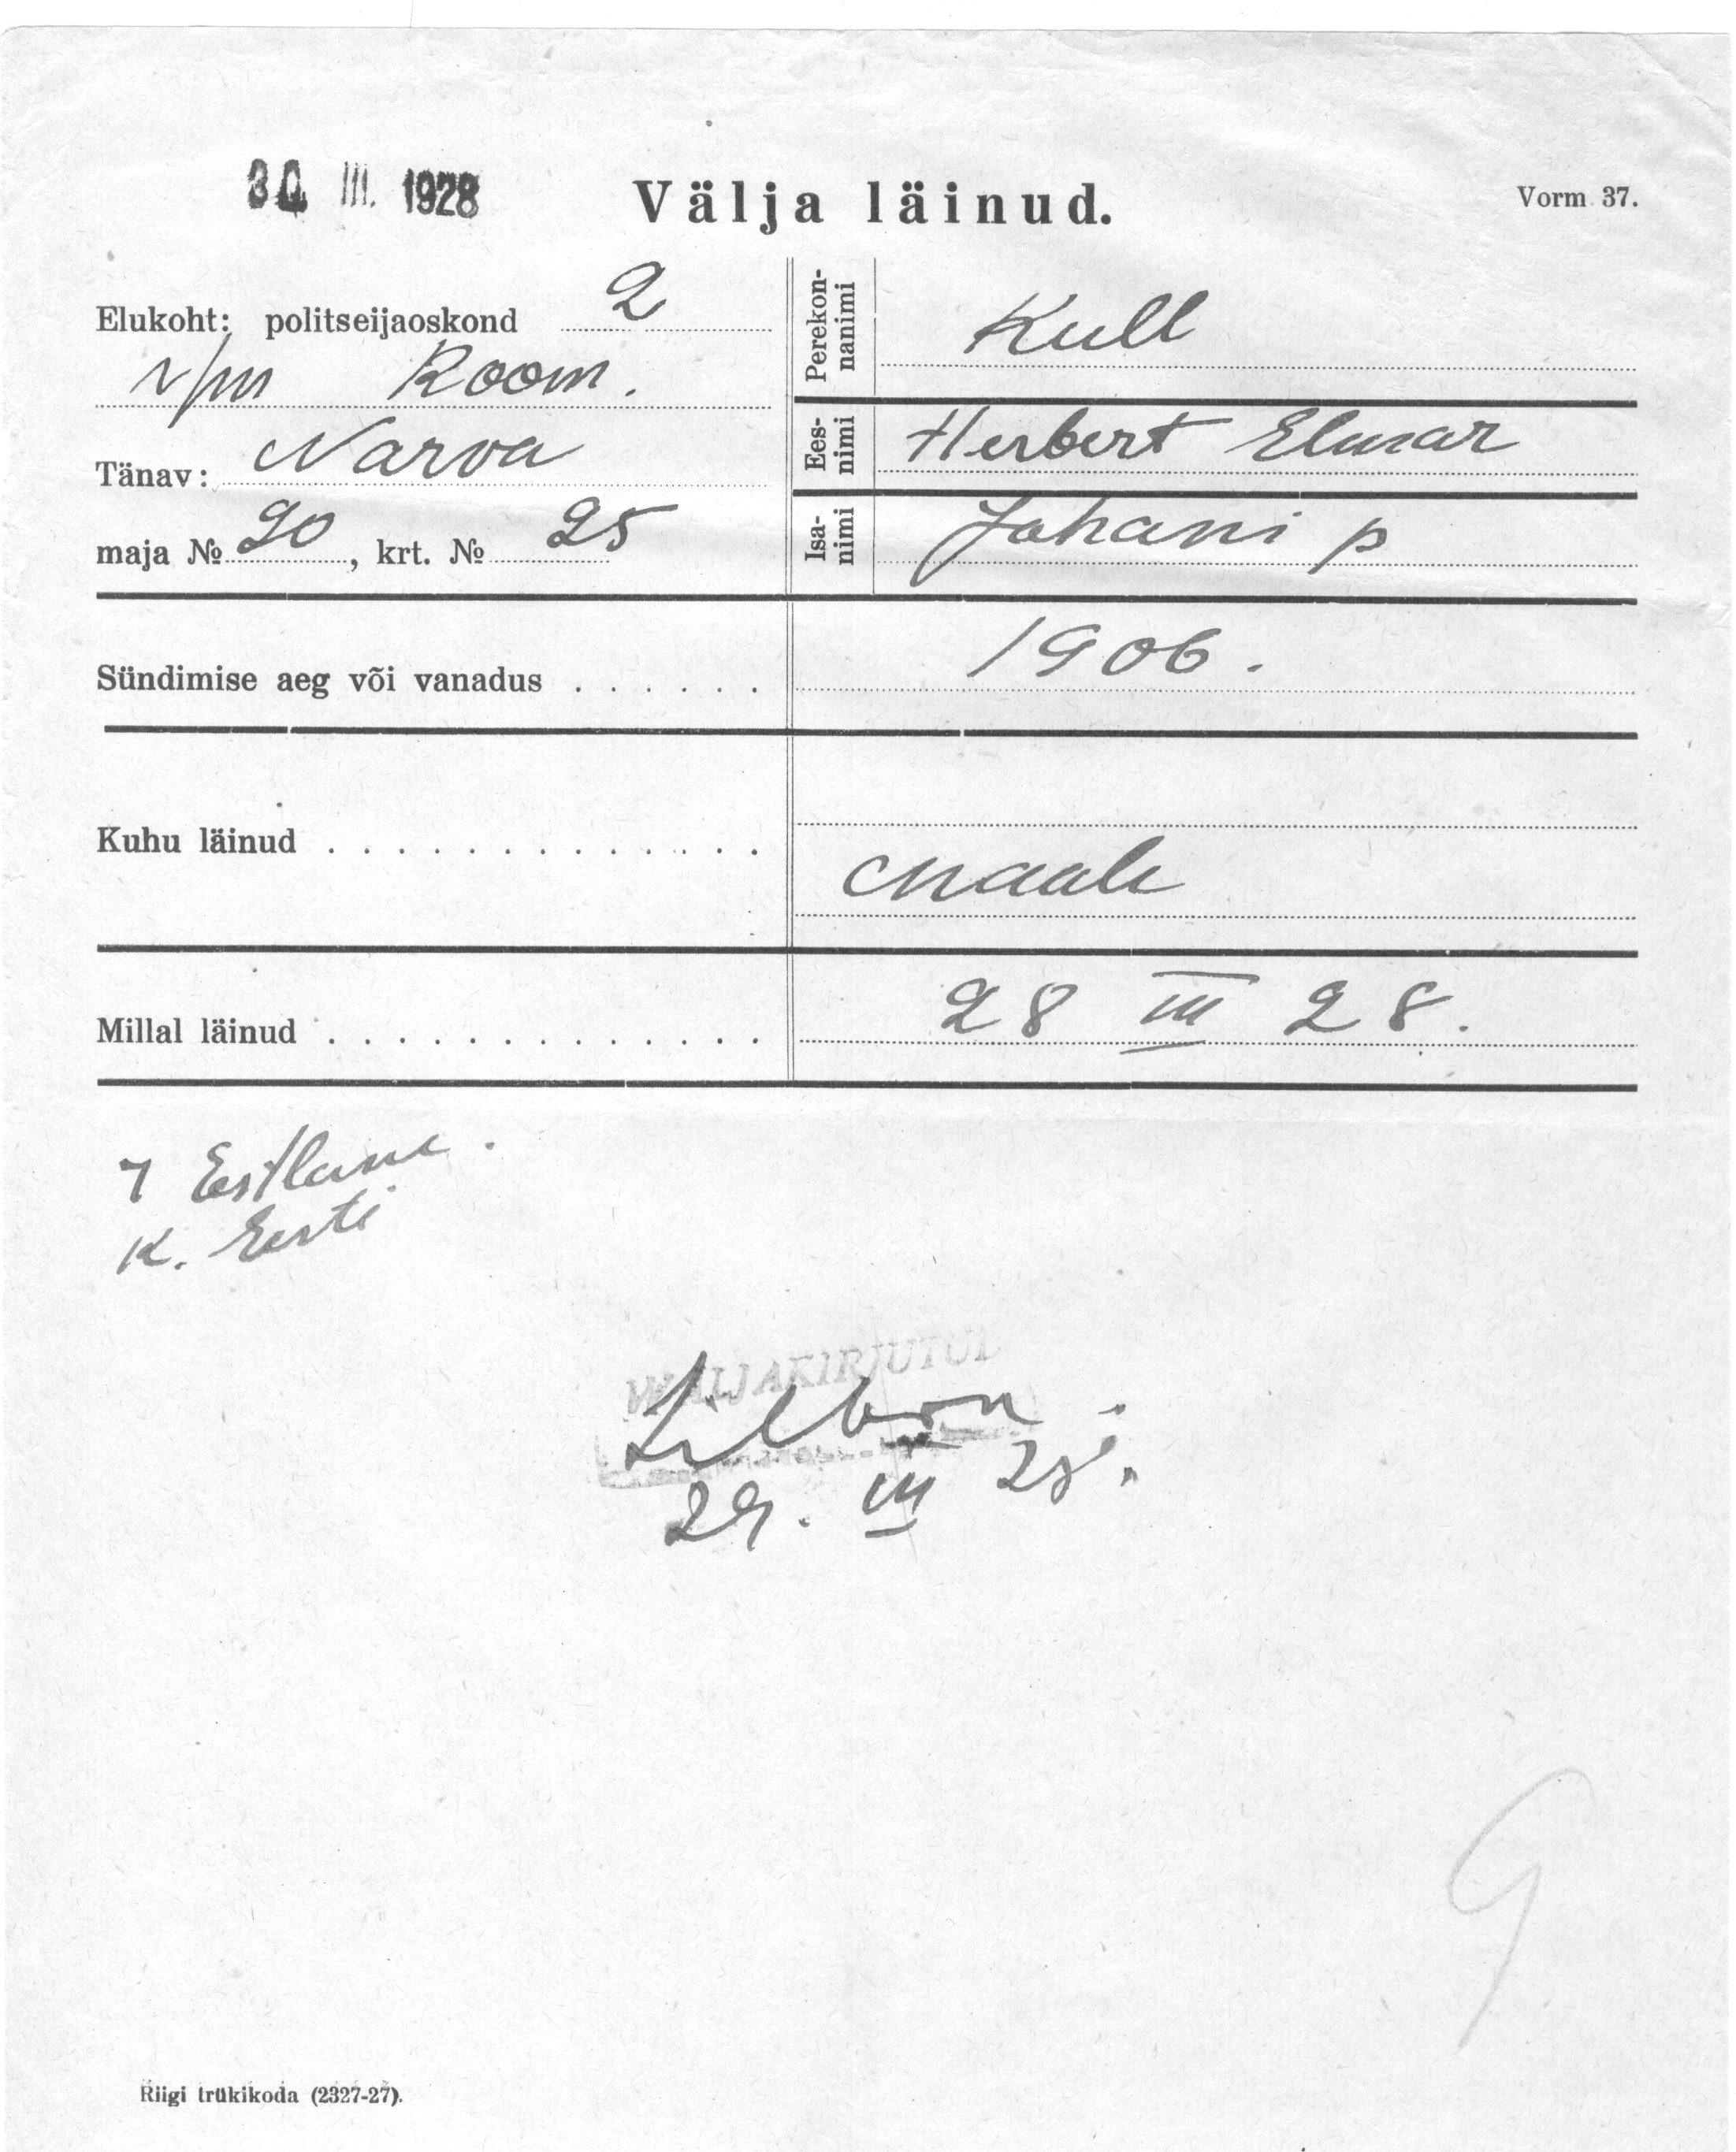 30 III. 1928
Välja läinud.
Vorm 37.
Elukoht: politseijaoskond 2
v/m Room.
Tänav: Narva
maja № 20, krt. № 25
Perekon-
nanimi
Kull
Ees-
nimi
Herbert Elmar
Isa-
nimi
Johani p
Sündimise aeg või vanadus . . . . . . 1906.
Kuhu läinud . . . . . . . . . . . . .
Maale
Millal läinud . . . . . . . . . . . . . 28 III 28.
Eestlane.
K. Eesti
VÄLJAKIRJUTUD
29. III 28.
9
Riigi trükikoda (2327-27).